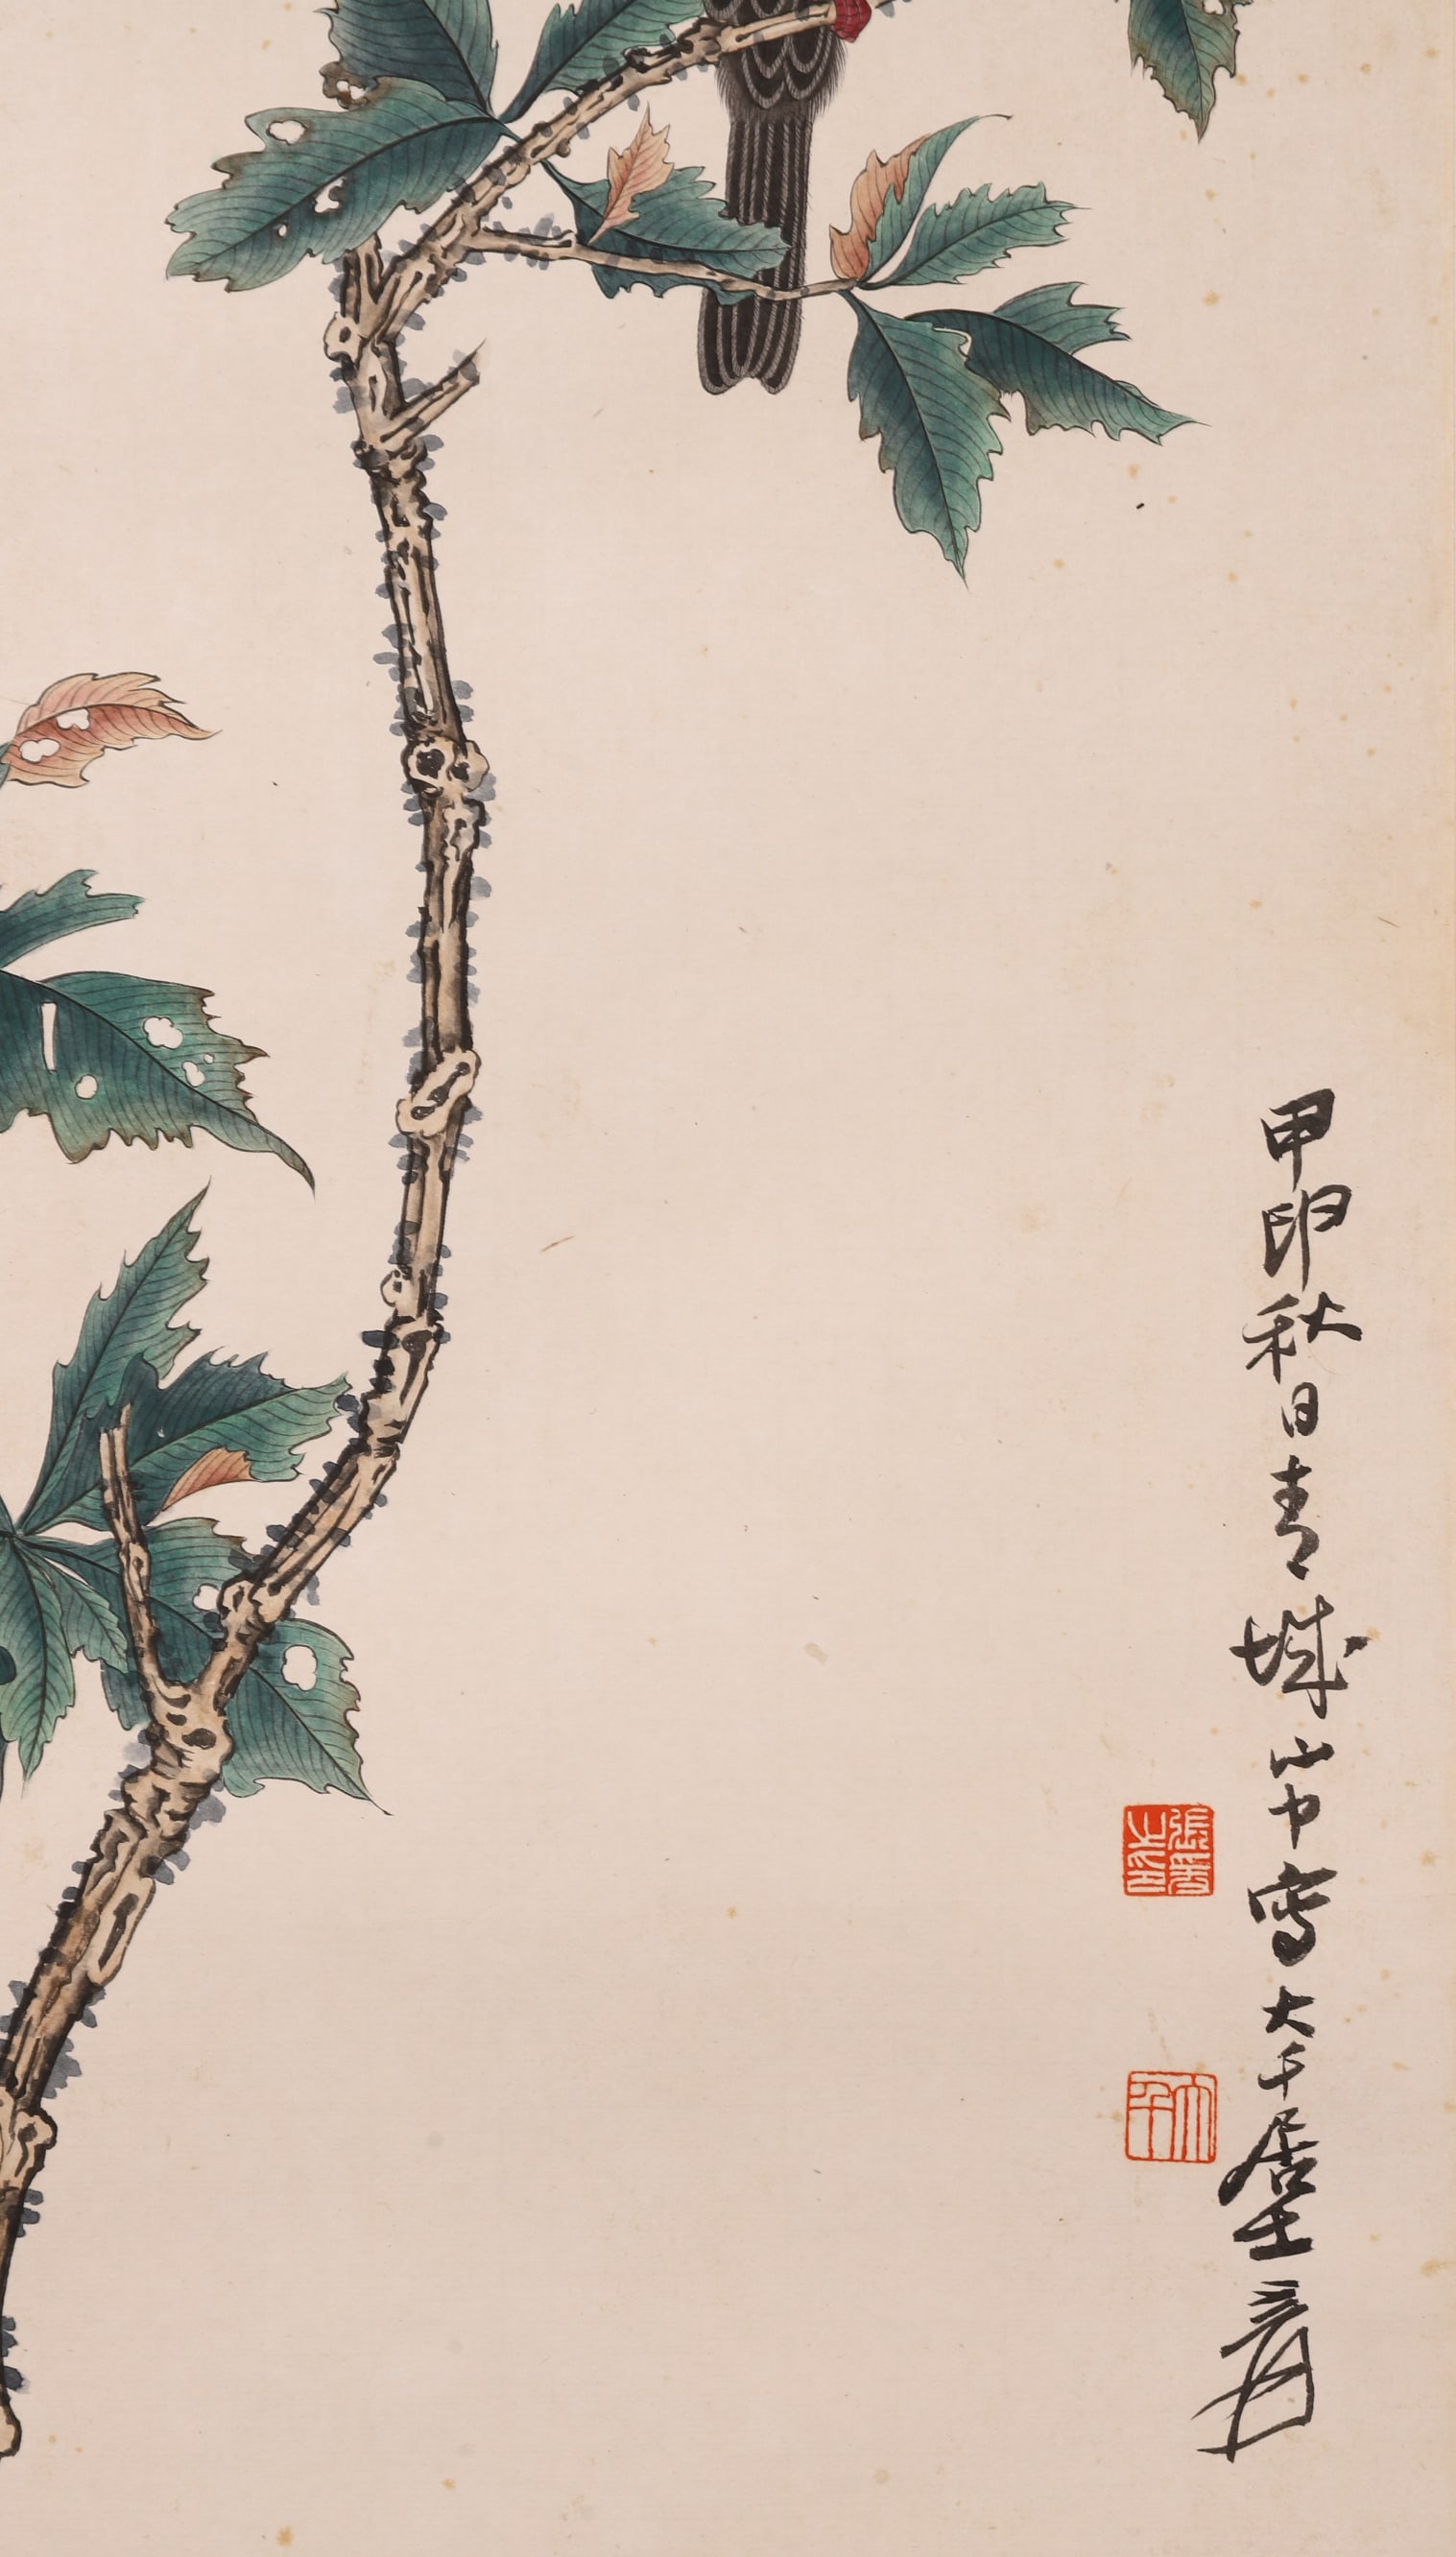 甲申秋日青城山中寫大千居士爰
張爰之印
大千